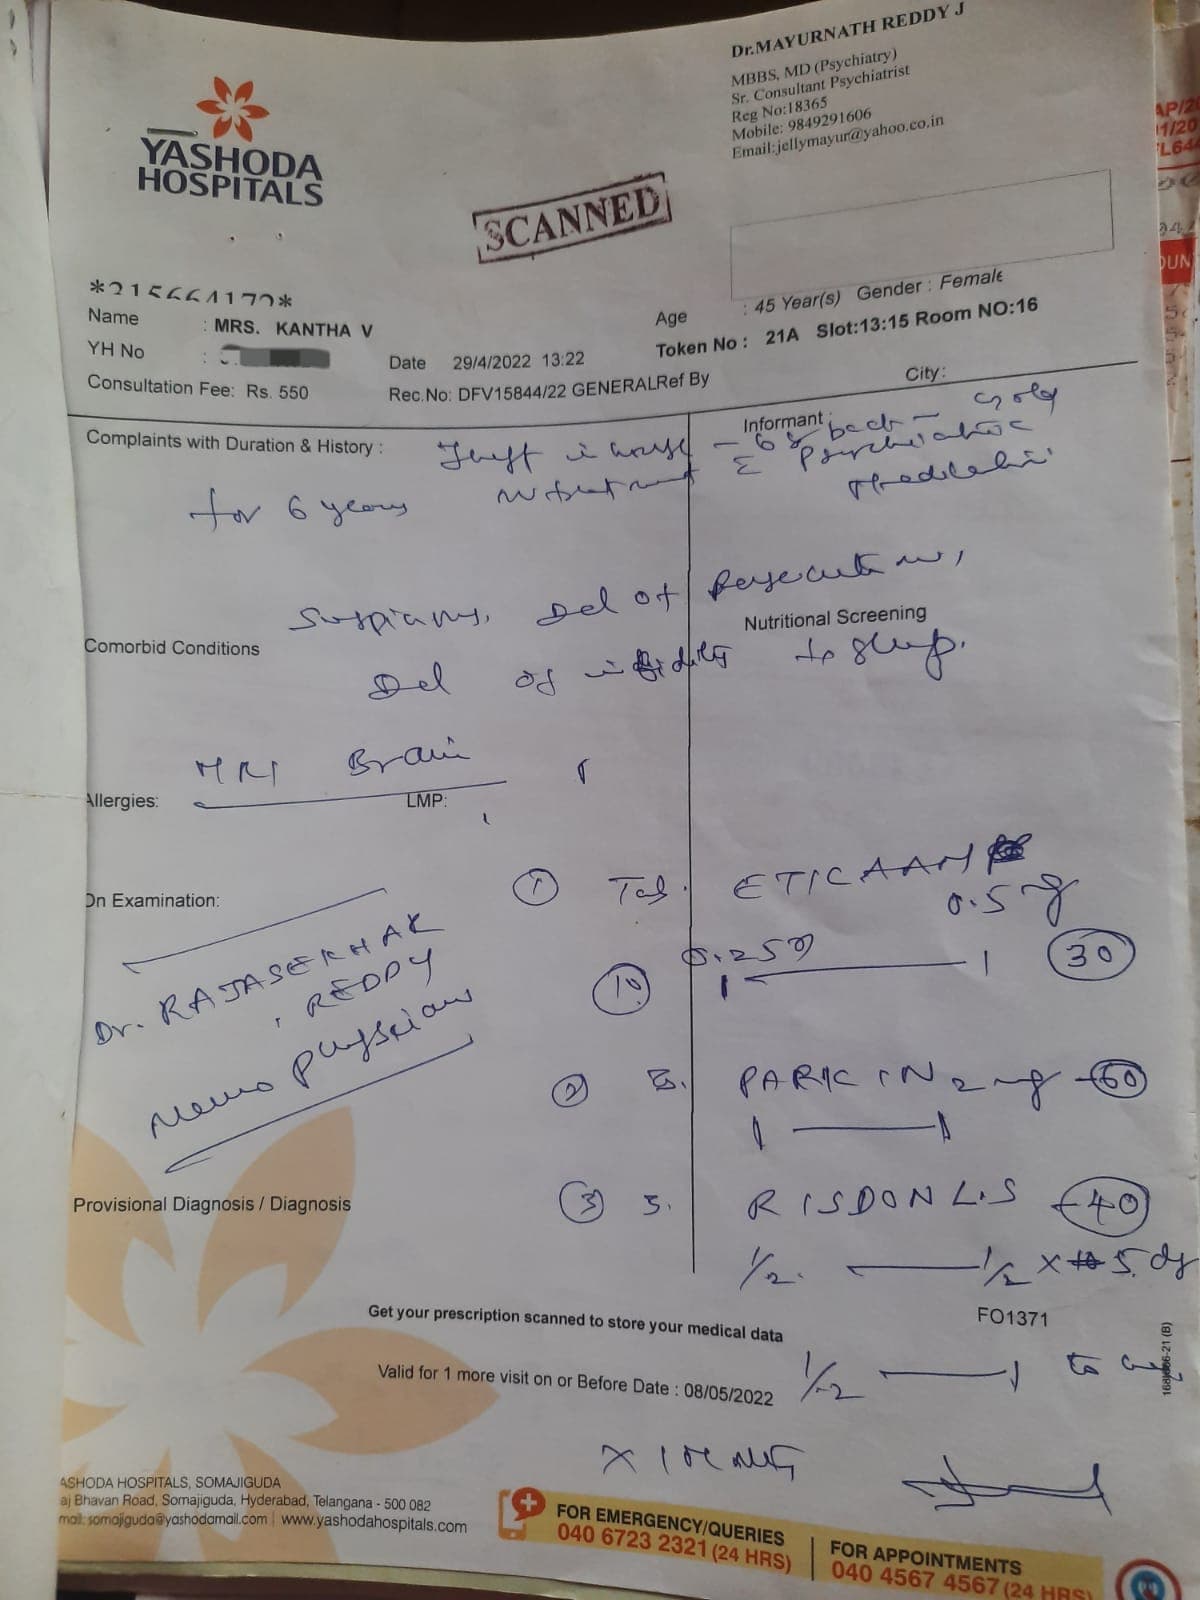 Dr.MAYURNATH REDDY J
MBBS, MD (Psychiatry)
Sr. Consultant Psychiatrist
Reg No:18365
Mobile: 9849291606
Email:jellymayur@yahoo.co.in
YASHODA
HOSPITALS
SCANNED
Name : MRS. KANTHA V
Age : 45 Year(s) Gender : Female
YH No :
Date 29/4/2022 13:22
Token No : 21A Slot:13:15 Room NO:16
Consultation Fee: Rs. 550
Rec.No: DFV15844/22 GENERALRef By
City:
Complaints with Duration & History :
Informant :
Theft in house - 6 back - gold
for 6 years
Psychiatric
Medication
Del of Persecution,
Comorbid Conditions
Nutritional Screening
Del of infidelity sleep.
MRI Brain
Allergies:
LMP:
On Examination:
① Tab. ETICAAM
0.5 mg
0.25 30
Dr. RAJASEKHAR
REDDY
Neuro physician
② PARKIN 2 mg - 60
Provisional Diagnosis / Diagnosis
③ RISDON LS - 40
1/2 1/2 x 5 dy
Get your prescription scanned to store your medical data
FO1371
Valid for 1 more visit on or Before Date : 08/05/2022
1/2 1
ASHODA HOSPITALS, SOMAJIGUDA
aj Bhavan Road, Somajiguda, Hyderabad, Telangana - 500 082
mail: somajiguda@yashodamail.com | www.yashodahospitals.com
FOR EMERGENCY/QUERIES
040 6723 2321 (24 HRS)
FOR APPOINTMENTS
040 4567 4567 (24 HRS)